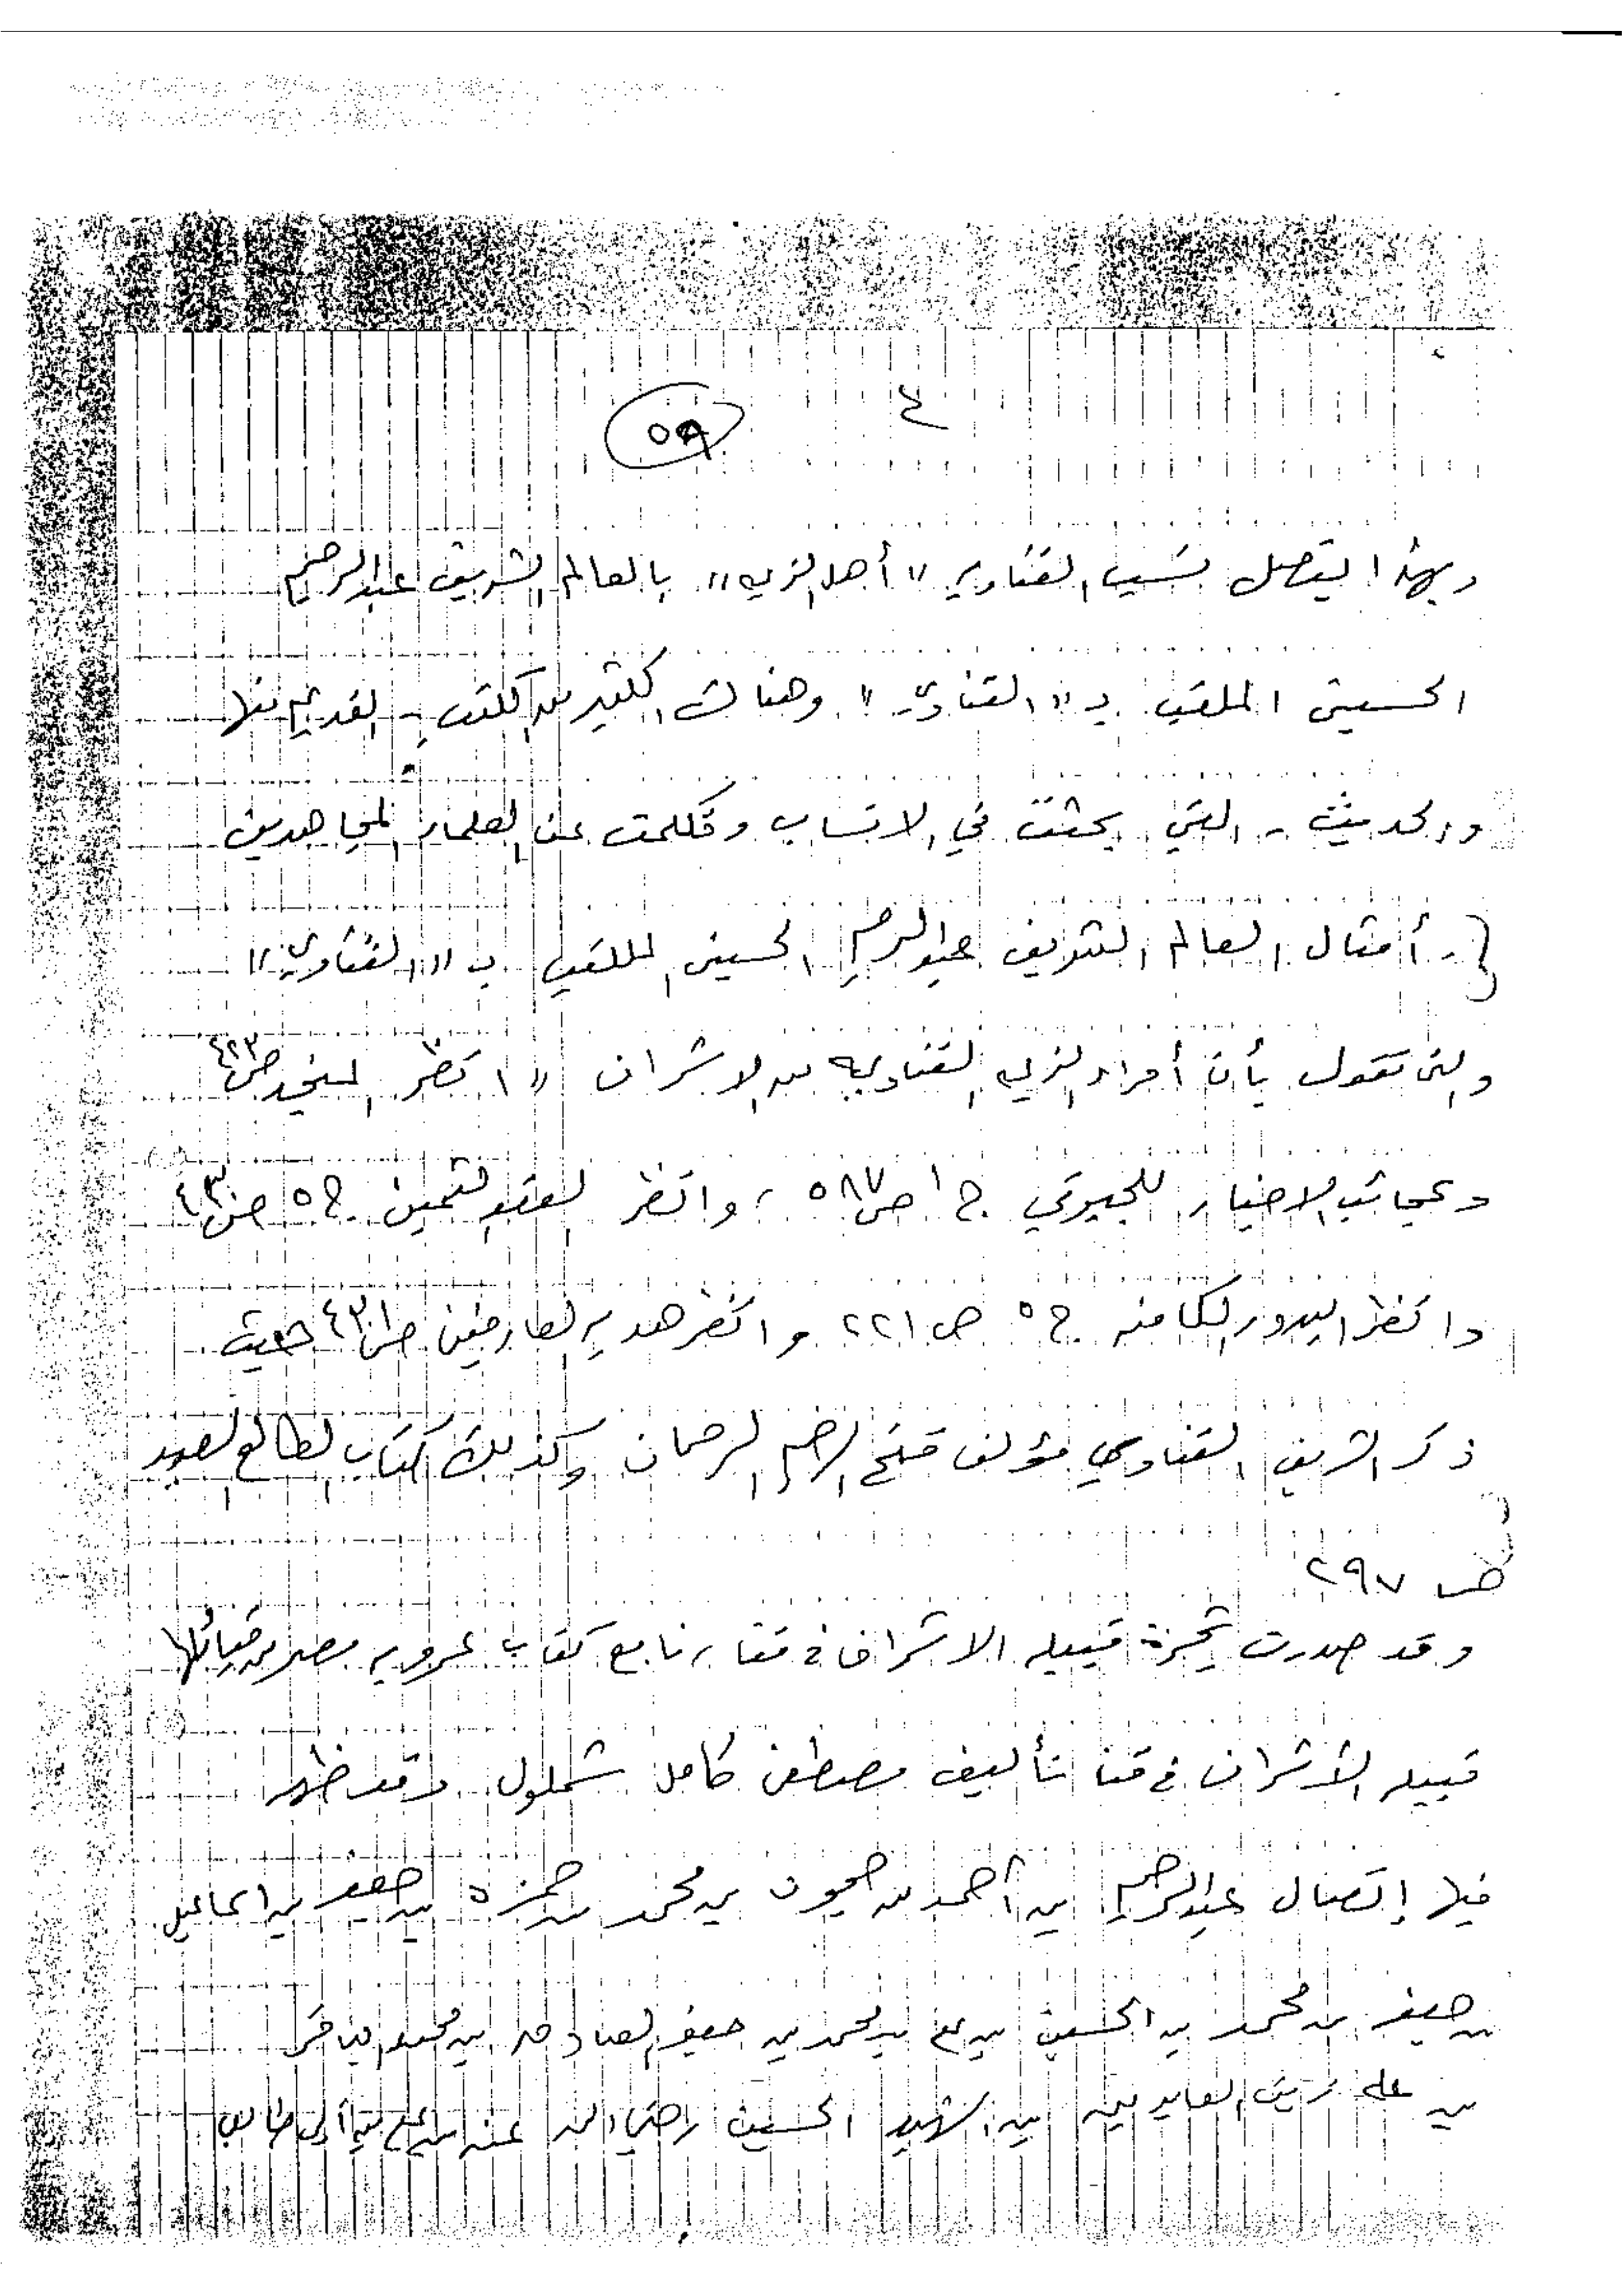 ٤ ٥٩
وبهذا يتصل نسب القناويه "أهل الزيه" بالعالم الشريف عبدالرحيم
الحسيني الملقب بـ "القناوي" وهناك الكثير من الكتب - القديم منها
والحديث - التي بحثت في الانساب وتكلمت عن العلماء المجاهدين
- أمثال العالم الشريف عبدالرحيم الحسيني الملقب بـ "القناوي"
والتي تقول بأن أمراء الزيه القناويه من الاشراف "انظر المنجد ص ٤٢٣
وعجائب الاخبار للجبرتي ج ١ ص ٥٨٧ ، وانظر العقد الثمين ج ٥ ص ٤٣١
وانظر البدور الكامنه ج ٥ ص ٢٢١ وانظر هديه العارفين ص ٤٣١ حيث
ذكر الشريف القناوي مؤلف فتح الرحيم الرحمان وكذلك كتاب الطالع السعيد
ص ٢٩٧
وقد صدرت شجرة قبيله الاشراف في قنا كتاب عروبه مصر من قبائلها
قبيله الأشراف في قنا تأليف مصطفى كامل شملول وقد ظهر
فيها إتصال عبدالرحيم بن أحمد بن حجون بن محمد بن حمزه بن جعفر بن اسماعيل
بن جعفر بن محمد بن الحسين بن علي بن محمد بن جعفر الصادق بن محمد الباقر
بن علي زين العابدين بن الشهيد الحسين رضي الله عنه بن علي بن أبي طالب